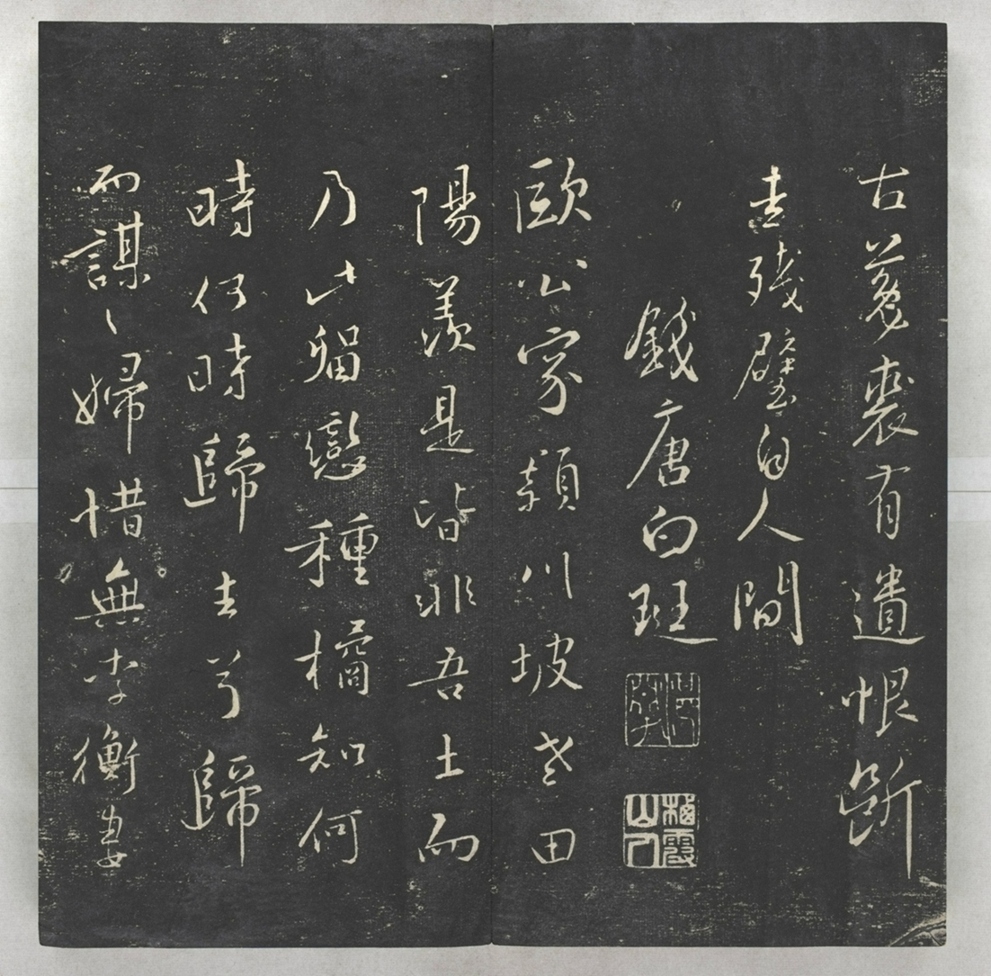 古菟裘有遺恨斷
圭殘璧自人間
錢唐白珽
栖霞山人
歐公家潁川坡老田
陽羨是皆非吾土而
乃此戀種橘知何
時何時歸去兮歸
而謀〻婦惜無李衡妻